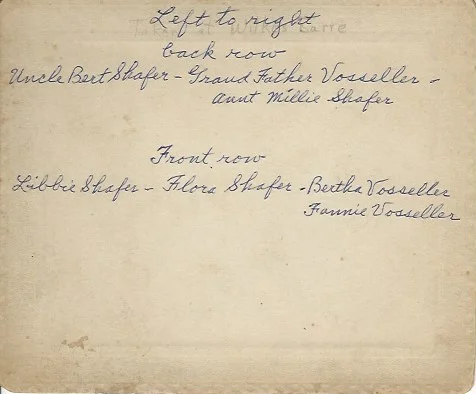 Left to right
Taken at Wilkes Barre
back row
Uncle Bert Shafer - Grand Father Vosseller -
Aunt Millie Shafer
Front row
Libbie Shafer - Flora Shafer - Bertha Vosseller
Fannie Vosseller